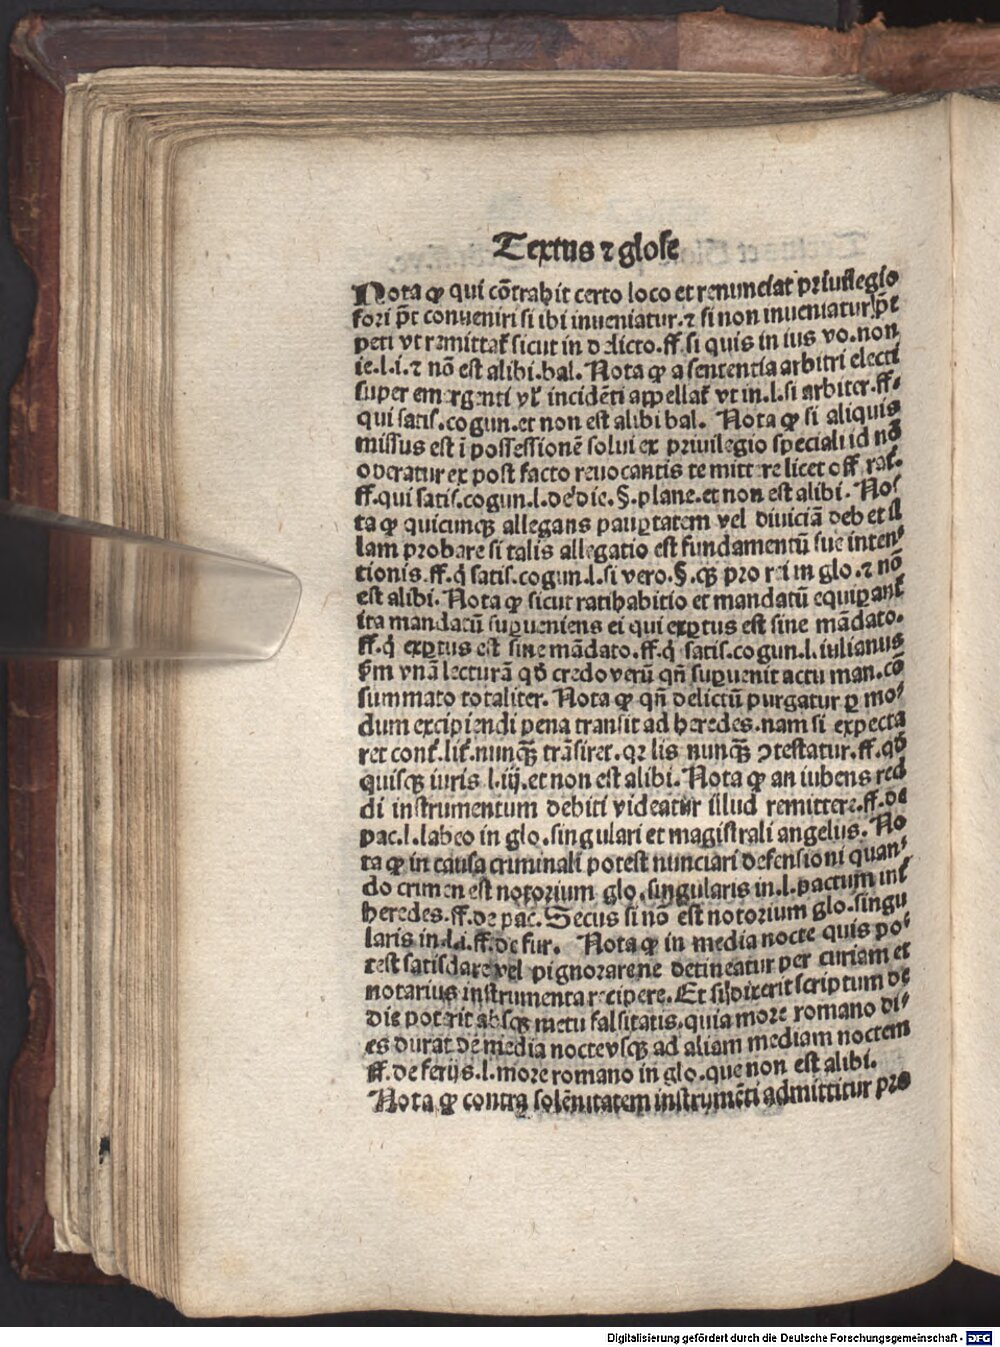 Textus ⁊ glose
Nota ꝙ qui cõtrahit certo loco et renunciat priuilegio
fori põt conueniri si ibi inueniatur.⁊ si non inueniatur põt
peti vt remittat̃ sicut in delicto.ff.si quis in ius vo.non
ie.l.i.⁊ nõ est alibi.bal. Nota ꝙ a sententia arbitri electi
super emergenti vl̕ incidẽti appellat̃ vt in.l.si arbiter.ff.
qui satis.cogun.et non est alibi bal. Nota ꝙ si aliquis
missus est ĩ possessionẽ solui ex priuilegio speciali id nõ
operatur ex post facto reuocantis
ff.qui satis.cogun.l.de die.§.plane.et non est alibi. No⸗
ta ꝙ quicunqꝫ allegans pauꝑtatem vel diuiciã debet il
lam probare si talis allegatio est fundamentũ sue inten⸗
tionis.ff.q̃ satis.cogun.l.si vero.§.qꝫ pro rei in glo.⁊ nõ
est alibi. Nota ꝙ sicut ratihabitio et mandatũ equiꝑant̃
ita mandatũ suꝑueniens ei qui exꝑtus est sine mãdato.
ff.q̃ exꝑtus est sine mãdato.ff.q̃ satis.cogun.l.iulianus
ẜm vnã lecturã qđ credo verũ qñ suꝑuenit actu man.cõ
summato totaliter. Nota ꝙ qñ delictũ purgatur ꝑ mo⸗
dum excipiendi pena transit ad heredes.nam si expecta
ret cont̃.lit̃.nunqꝫ trãsiret.qꝛ lis nunqꝫ ꝯtestatur.ff.qđ
quisqꝫ iuris l.iij.et non est alibi. Nota ꝙ an iubens red
di instrumentum debiti videatur illud remittere.ff.de
pac.l.labeo in glo.singulari et magistrali angelus. No
ta ꝙ in causa criminali potest nunciari defensioni quan⸗
do crimen est notorium glo.singularis in.l.pactum int̃
heredes.ff.de pac. Secus si nõ est notorium glo.singu
laris in.l.i.ff.de fur. Nota ꝙ in media nocte quis po⸗
test satisdare vel pignorare ne detineatur per curiam et
notarius instrumenta recipere. Et si dixerit scriptum de
die poterit absqꝫ metu falsitatis.quia more romano di⸗
es durat de media nocte vsqꝫ ad aliam mediam noctem
ff.de ferijs.l.more romano in glo.que non est alibi.
Nota ꝙ contra solẽnitatem instrumẽti admittitur pro
Digitalisierung gefördert durch die Deutsche Forschungsgemeinschaft - DFG